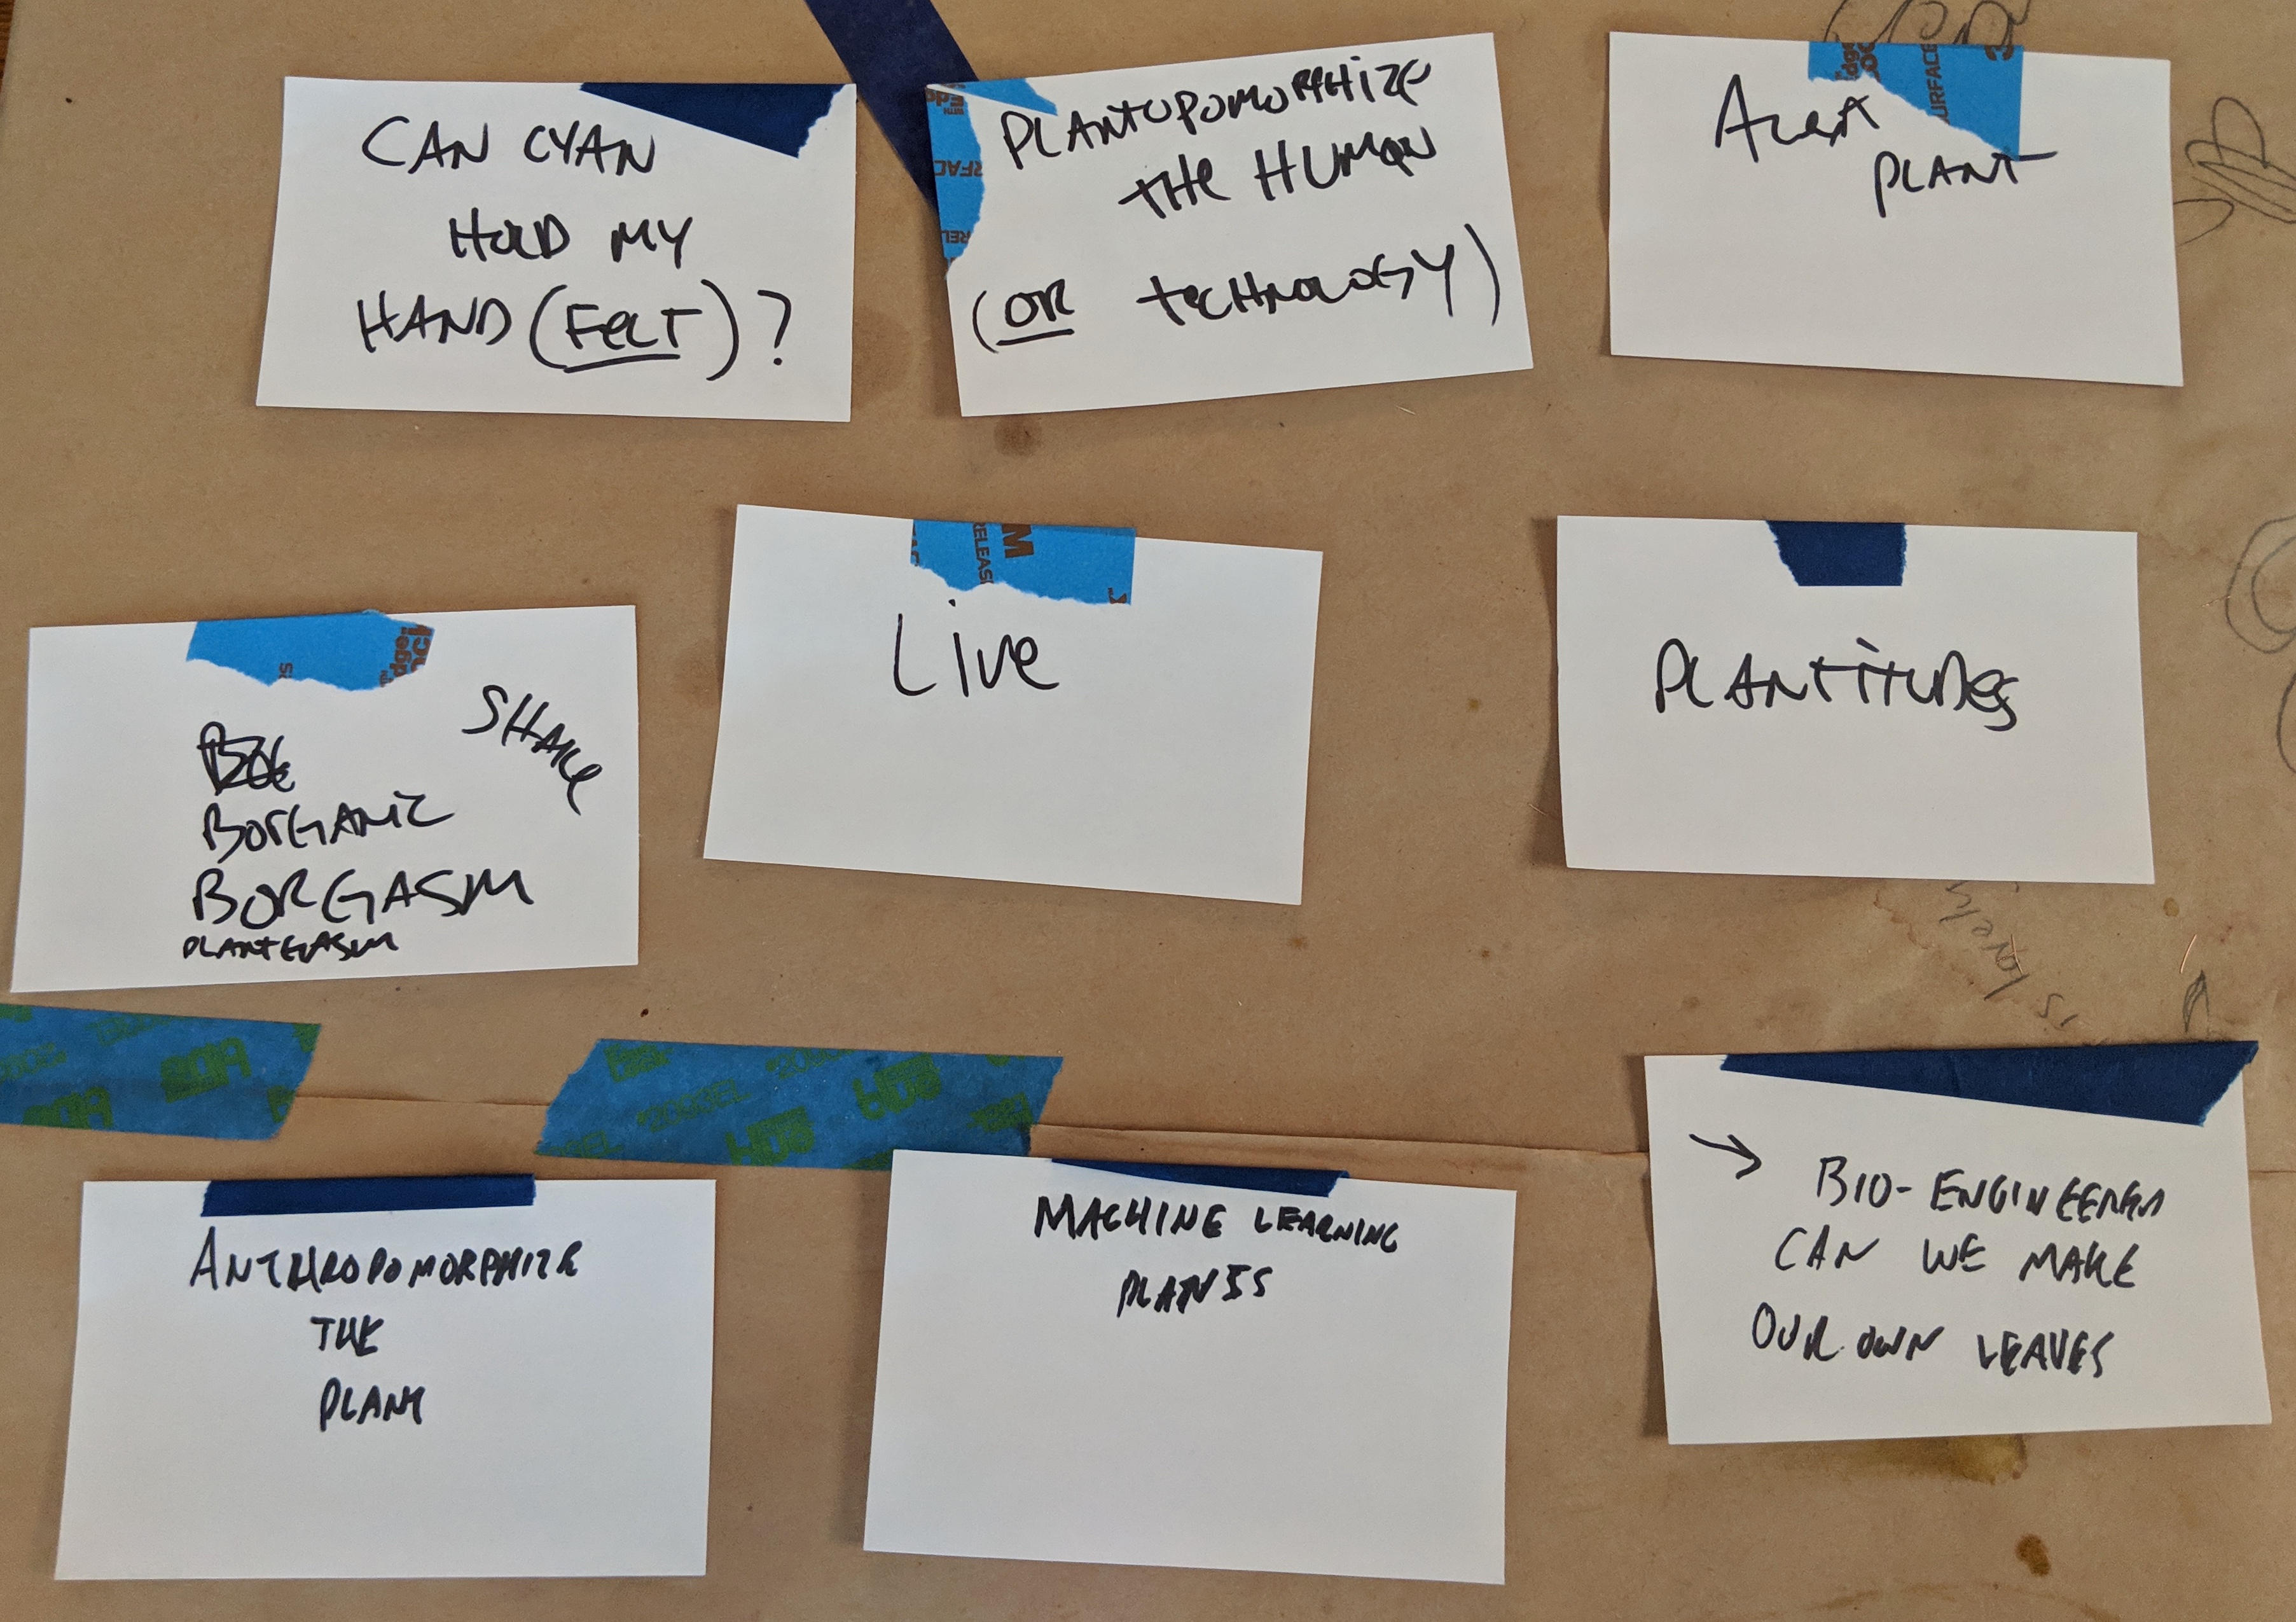 CAN CYAN
HOLD MY
HAND (FELT)?
PLANTOPOMORPHIZE
THE HUMAN
(OR TECHNOLOGY)
PLANT
SHAKE
BORGANIC
BORGASM
PLANTGASM
Live
PLANTITUDES
ANTHROPOMORPHIZE
THE
PLANT
MACHINE LEARNING
PLANTS
→ BIO-ENGINEERED
CAN WE MAKE
OUR OWN LEAVES